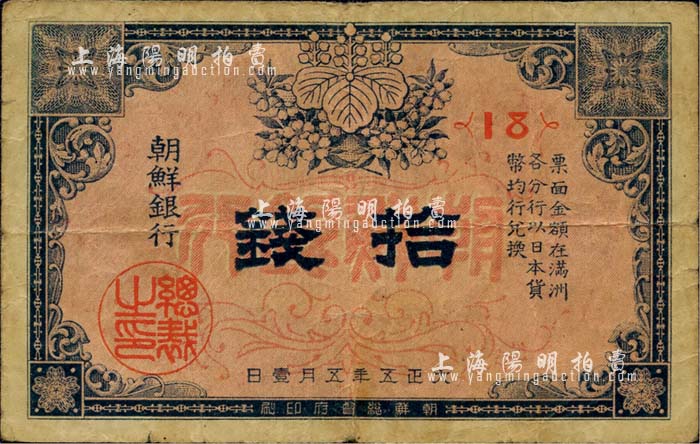 上海陽明拍賣
www.yangmingauction.com
上海陽明拍賣
www.yangmingauction.com
18
票面金額在滿洲
各分行以日本貨
幣均行兌換
朝鮮銀行
拾錢
上海陽明拍賣
www.yangmingauction.com
總裁之印
大正五年五月壹日
上海陽明拍賣
www.yangmingauction.com
朝鮮總督府印刷